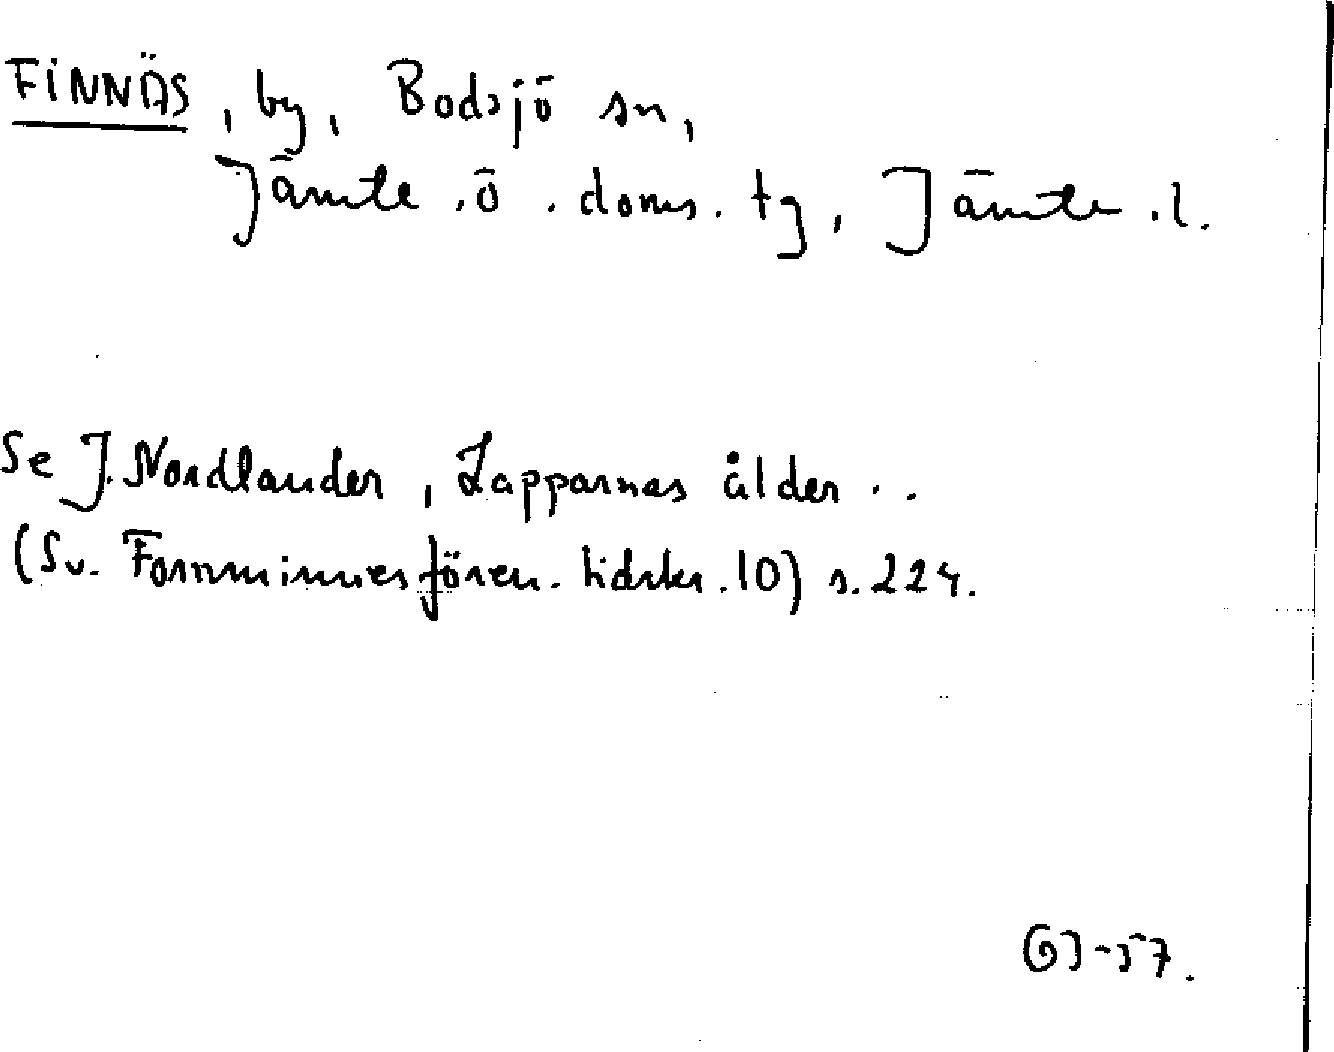 FINNÄS, by, Bodsjö sn,
Jämte.ö.doms.tg, Jämte.l.
Se J. Nordlander, Lapparnas ålder..
(Sv. Fornminnesfören. tidskr. 10) s. 224.
GJ-57.